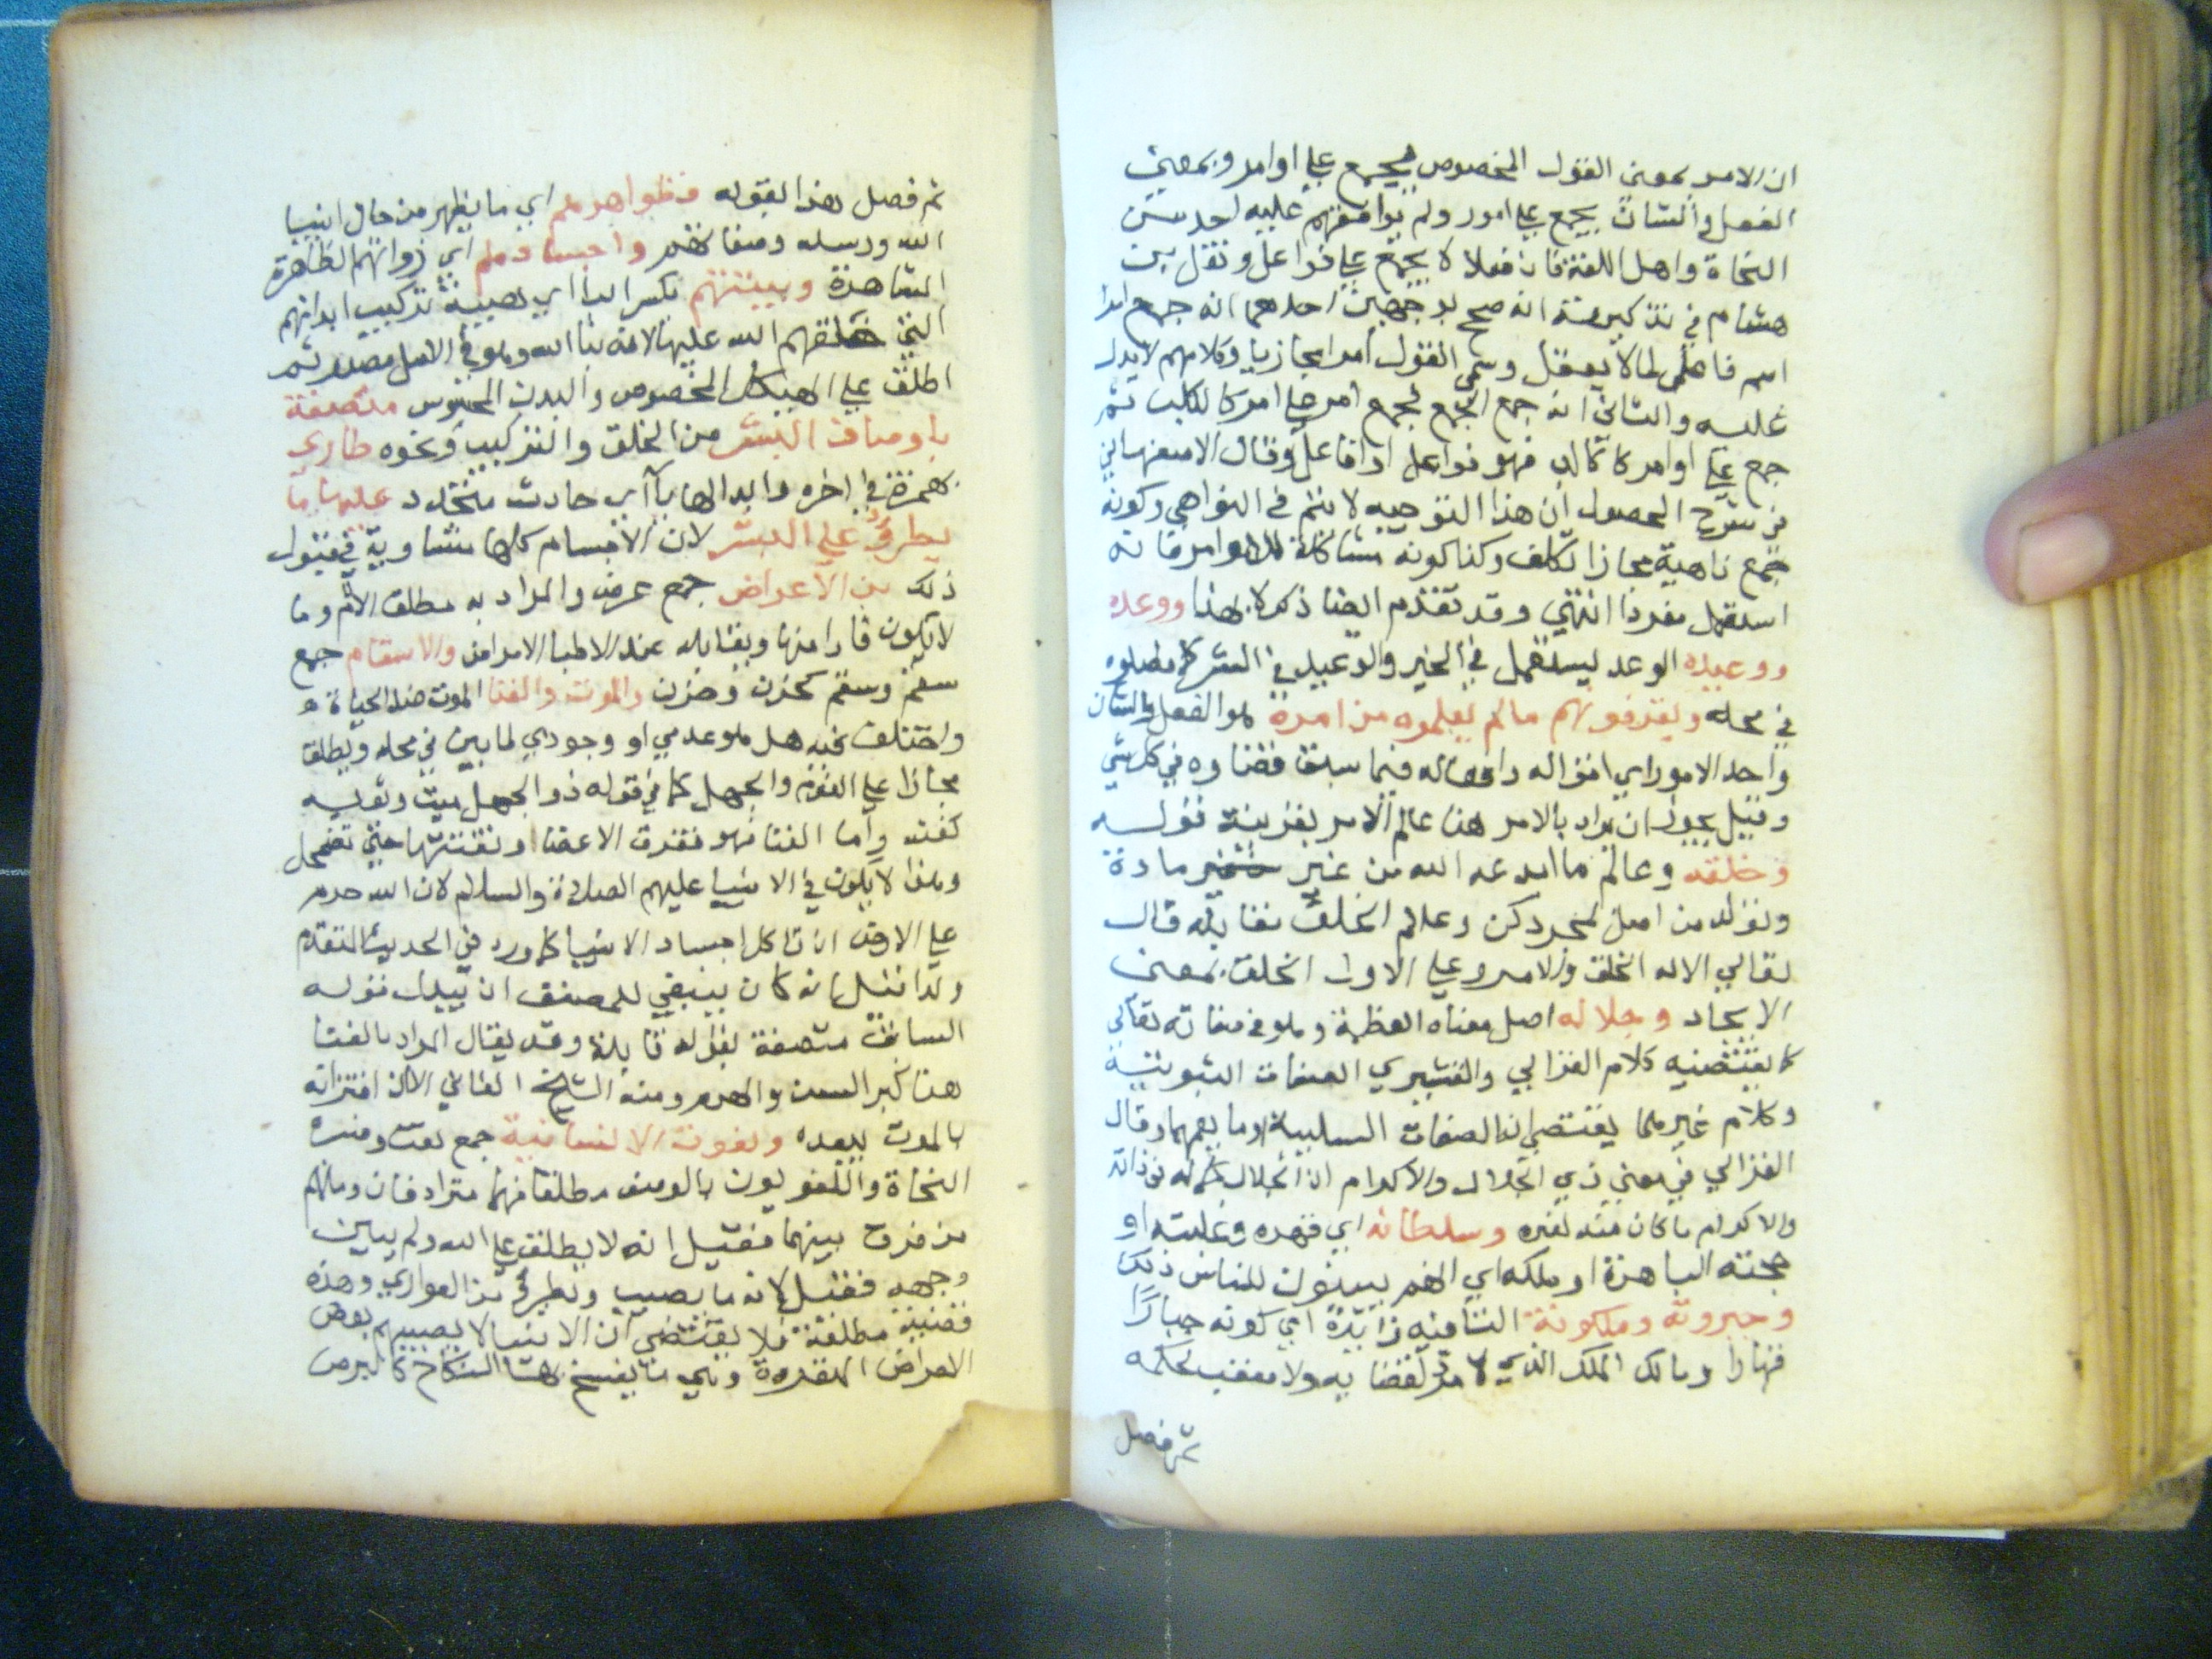 ان الامر بمعنى القول المخصوص يجمع على اوامر وبمعنى
الفعل والشان يجمع على امور ولم يوافقهم عليه احد من
النحاة واهل اللغة فان فعلا لا يجمع على فواعل ونقل بن
هشام في تذكيرته انه صح بوجهين احدهما انه جمع امر
اسم فاعل لما لا يعقل وسمى القول امرا مجازيا وكلامهم لا يدل
عليه والثاني انه جمع الجمع لجمع امر على امر كاكلب ثم
جمع على اوامر كاكالب فهو فواعل او افاعل وقال الاصفهاني
في شرح المحصول ان هذا التوجيه لا يتم في النواهي وكونه
جمع ناهية مجازا تكلف وكذا كونه مشاكلة للاوامر فانه
استعمل مفردا انتهي وقد تقدم ايضا ذكره لهذا ووعده
ووعيده الوعد يستعمل في الخير والوعيد في الشر كما فصلوه
في محله ويعرفونهم مالم يعلموه من امره هو الفعل والشان
واحد الامور اي اقواله وافعاله فيما سبق قضاوه في كل شي
وقيل يجوز ان يراد بالامر هنا عالم الامر بقرينة قوله
وخلقه وعالم ما ابدعه الله من غير مادة
وتولد من اصل لمجرد كن وعالم الخلق يقابله قال
تعالي الا له الخلق والامر وعلى الاول الخلق بمعنى
الايجاد وجلاله اصل معناه العظمة وهو في صفاته تعالي
كما يقتضيه كلام الغزالي والقشيري الصفات الثبوتية
وكلام غيرهما يقتضي انه الصفات السلبية او ما يعمهما وقال
الغزالي في معنى ذي الجلال والاكرام ان الجلال كماله في ذاته
والاكرام ما كان منه لغيره وسلطانه اي قهره وغلبته او
حجته الباهرة او ملكه اي انهم يبينون للناس ذلك
وجبروته وملكوته التا فيه زايدة اي كونه جبارا
قهارا ومالك الملك الذي لا مرد لقضايه ولا معقب لحكمه
ثم فصل
ثم فصل هذا بقوله فظواهرهم اي ما يظهر من حال انبيا
الله ورسله وصفاتهم واجسادهم اي ذواتهم الظاهرة
المشاهدة وبنيتهم بكسر البا اي هيية تركيب ابدانهم
التي خلقهم الله عليها لانه بنا الله وهو في الاصل مصدر ثم
اطلق على الهيكل المخصوص والبدن المحسوس متصفة
باوصاف البشر من الخلق والتركيب ونحوه طاري
بهمزة في اخره وابدالها يا اي حادث متجدد عليها ما
يطرؤ على البشر لان الاجسام كلها متساوية في قبول
ذلك من الاعراض جمع عرض والمراد به مطلق الالم وما
لا يكون قارا منها ويقابله عند الاطبا الامراض والاسقام جمع
سقم وسقم كحزن وحزن والموت والفنا الموت ضد الحياة
واختلف فيه هل هو عدمي او وجودي لما بين في محله ويطلق
مجازا على النوم والجهل كما في قوله ذو الجهل ميت وثوبه
كفنه واما الفنا فهو تفرق الاعضا وتفتتها حتى تضمحل
وهذا لا يكون في الانبيا عليهم الصلاة والسلام لان الله حرم
على الارض ان تاكل اجساد الانبيا كما ورد في الحديث المتقدم
ولذا قيل انه كان ينبغي للمصنف ان يبدل قوله
السابق متصفة بقوله قابلة وقد يقال المراد بالفنا
هنا كبر السن والهرم ومنه الشيخ الفاني لان اقترانه
بالموت يبعده ونعوت الانسانية جمع نعت وفسره
النحاة واللغويون بالوصف مطلقا فهما مترادفان ومنهم
من فرق بينهما فقيل انه لا يطلق على الله ولم يبين
وجهه فقيل لانه ما يصيب ويطرؤ من العواري وهذه
قضية مطلقة فلا يقتضي ان الانبيا لا يصيبهم بعض
الامراض المنفرة وهي ما يفسخ النكاح كالبرص